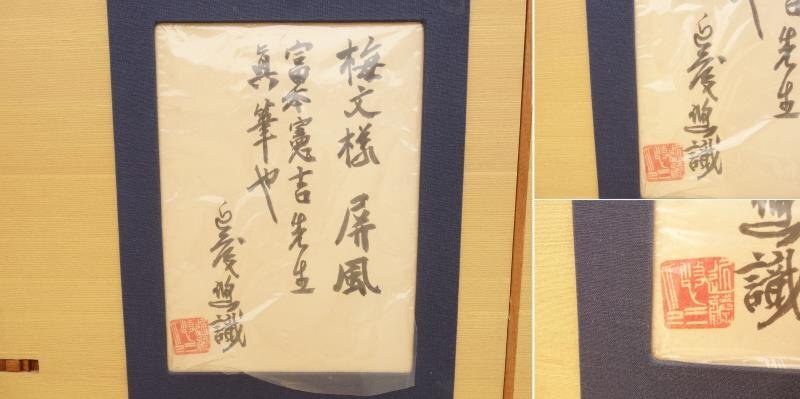 梅文様 屏風
富本憲吉先生
眞筆也
近藤悠識
先生
近藤悠識
識